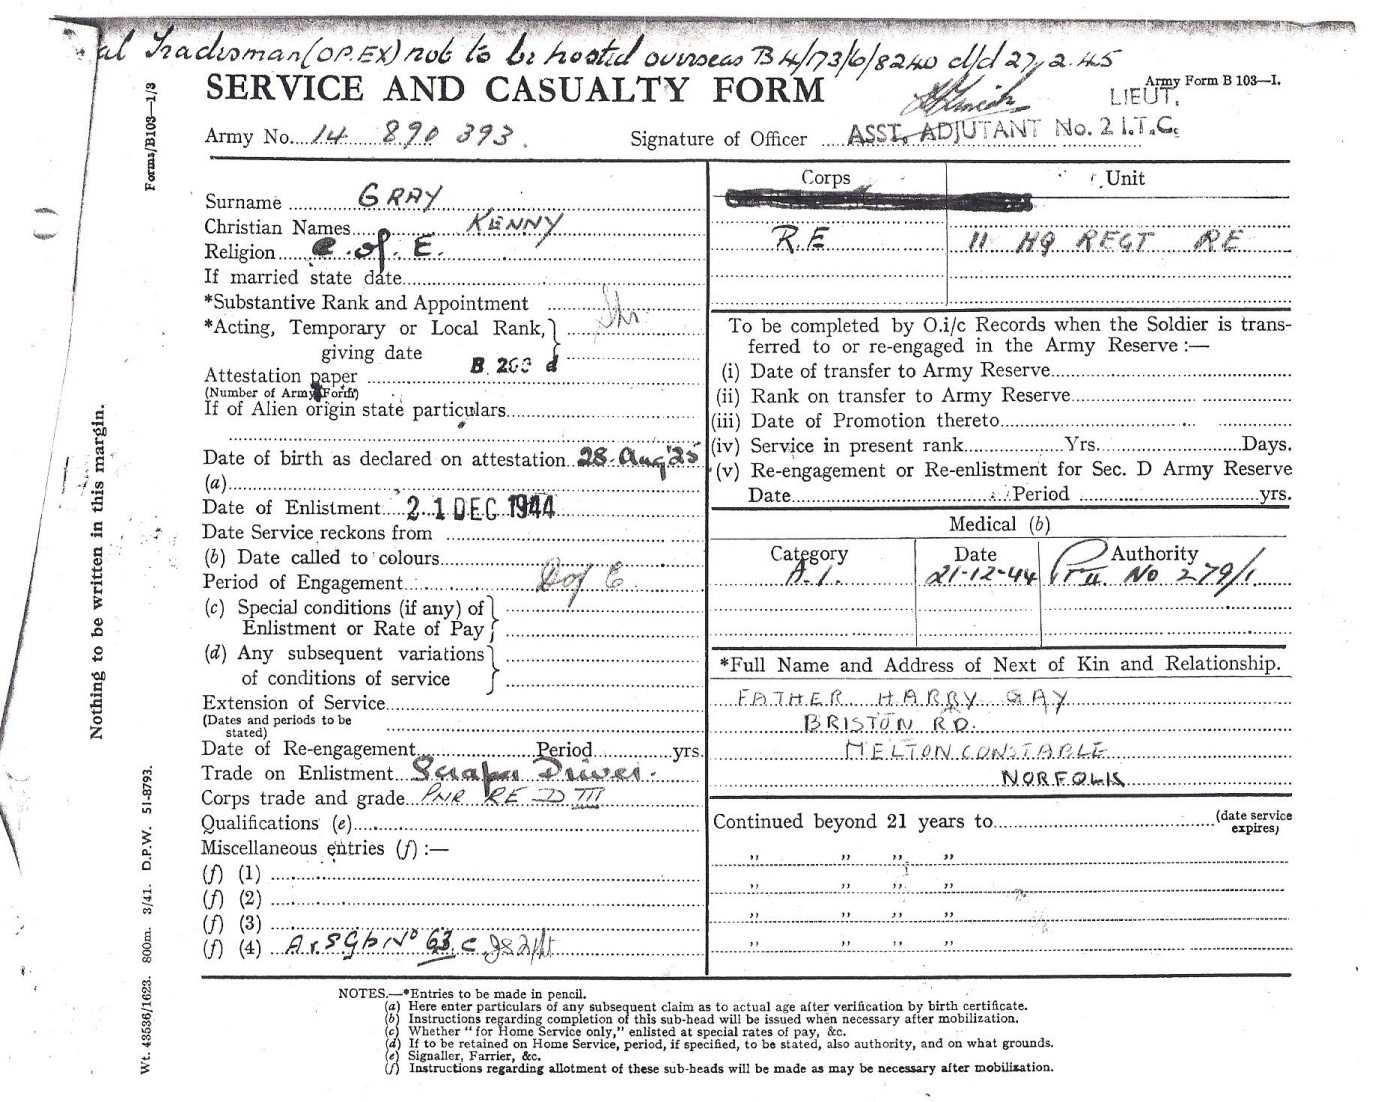 al Tradesman (OP.EX) not to be posted overseas B4/73/6/8240 d/d 27.2.45
SERVICE AND CASUALTY FORM
Army Form B 103—I.
LIEUT.
Army No. 14 890 393.
Signature of Officer ASST. ADJUTANT No. 2 I.T.C.
Forms/B103—1/3
Nothing to be written in this margin.
Wt. 43536/1623. 800m. 3/41. D.P.W. 51-8793.
Surname GRAY
Christian Names KENNY
Religion C. of. E.
If married state date
*Substantive Rank and Appointment
*Acting, Temporary or Local Rank,
giving date
Attestation paper B 203 d
(Number of Army Form)
If of Alien origin state particulars
Date of birth as declared on attestation 28. Aug '25
(a)
Date of Enlistment 21 DEC 1944
Date Service reckons from
(b) Date called to colours
Period of Engagement D of E
(c) Special conditions (if any) of
Enlistment or Rate of Pay
(d) Any subsequent variations
of conditions of service
Extension of Service
(Dates and periods to be
stated)
Date of Re-engagement Period yrs.
Trade on Enlistment Scraper Driver.
Corps trade and grade PNR RE D III
Qualifications (e)
Miscellaneous entries (f) :—
(f) (1)
(f) (2)
(f) (3)
(f) (4) A & S Gp No 63. C
Corps Unit
R.E 11 HQ REGT RE
To be completed by O.i/c Records when the Soldier is trans-
ferred to or re-engaged in the Army Reserve :—
(i) Date of transfer to Army Reserve
(ii) Rank on transfer to Army Reserve
(iii) Date of Promotion thereto
(iv) Service in present rank Yrs. Days.
(v) Re-engagement or Re-enlistment for Sec. D Army Reserve
Date Period yrs.
Medical (b)
Category Date Authority
A.1. 21-12-44 No 279/1
*Full Name and Address of Next of Kin and Relationship.
FATHER HARRY GAY
BRISTON RD.
MELTON CONSTABLE
NORFOLK
Continued beyond 21 years to (date service
expires)
,, ,, ,, ,,
,, ,, ,, ,,
,, ,, ,, ,,
,, ,, ,, ,,
NOTES.—*Entries to be made in pencil.
(a) Here enter particulars of any subsequent claim as to actual age after verification by birth certificate.
(b) Instructions regarding completion of this sub-head will be issued when necessary after mobilization.
(c) Whether "for Home Service only," enlisted at special rates of pay, &c.
(d) If to be retained on Home Service, period, if specified, to be stated, also authority, and on what grounds.
(e) Signaller, Farrier, &c.
(f) Instructions regarding allotment of these sub-heads will be made as may be necessary after mobilization.